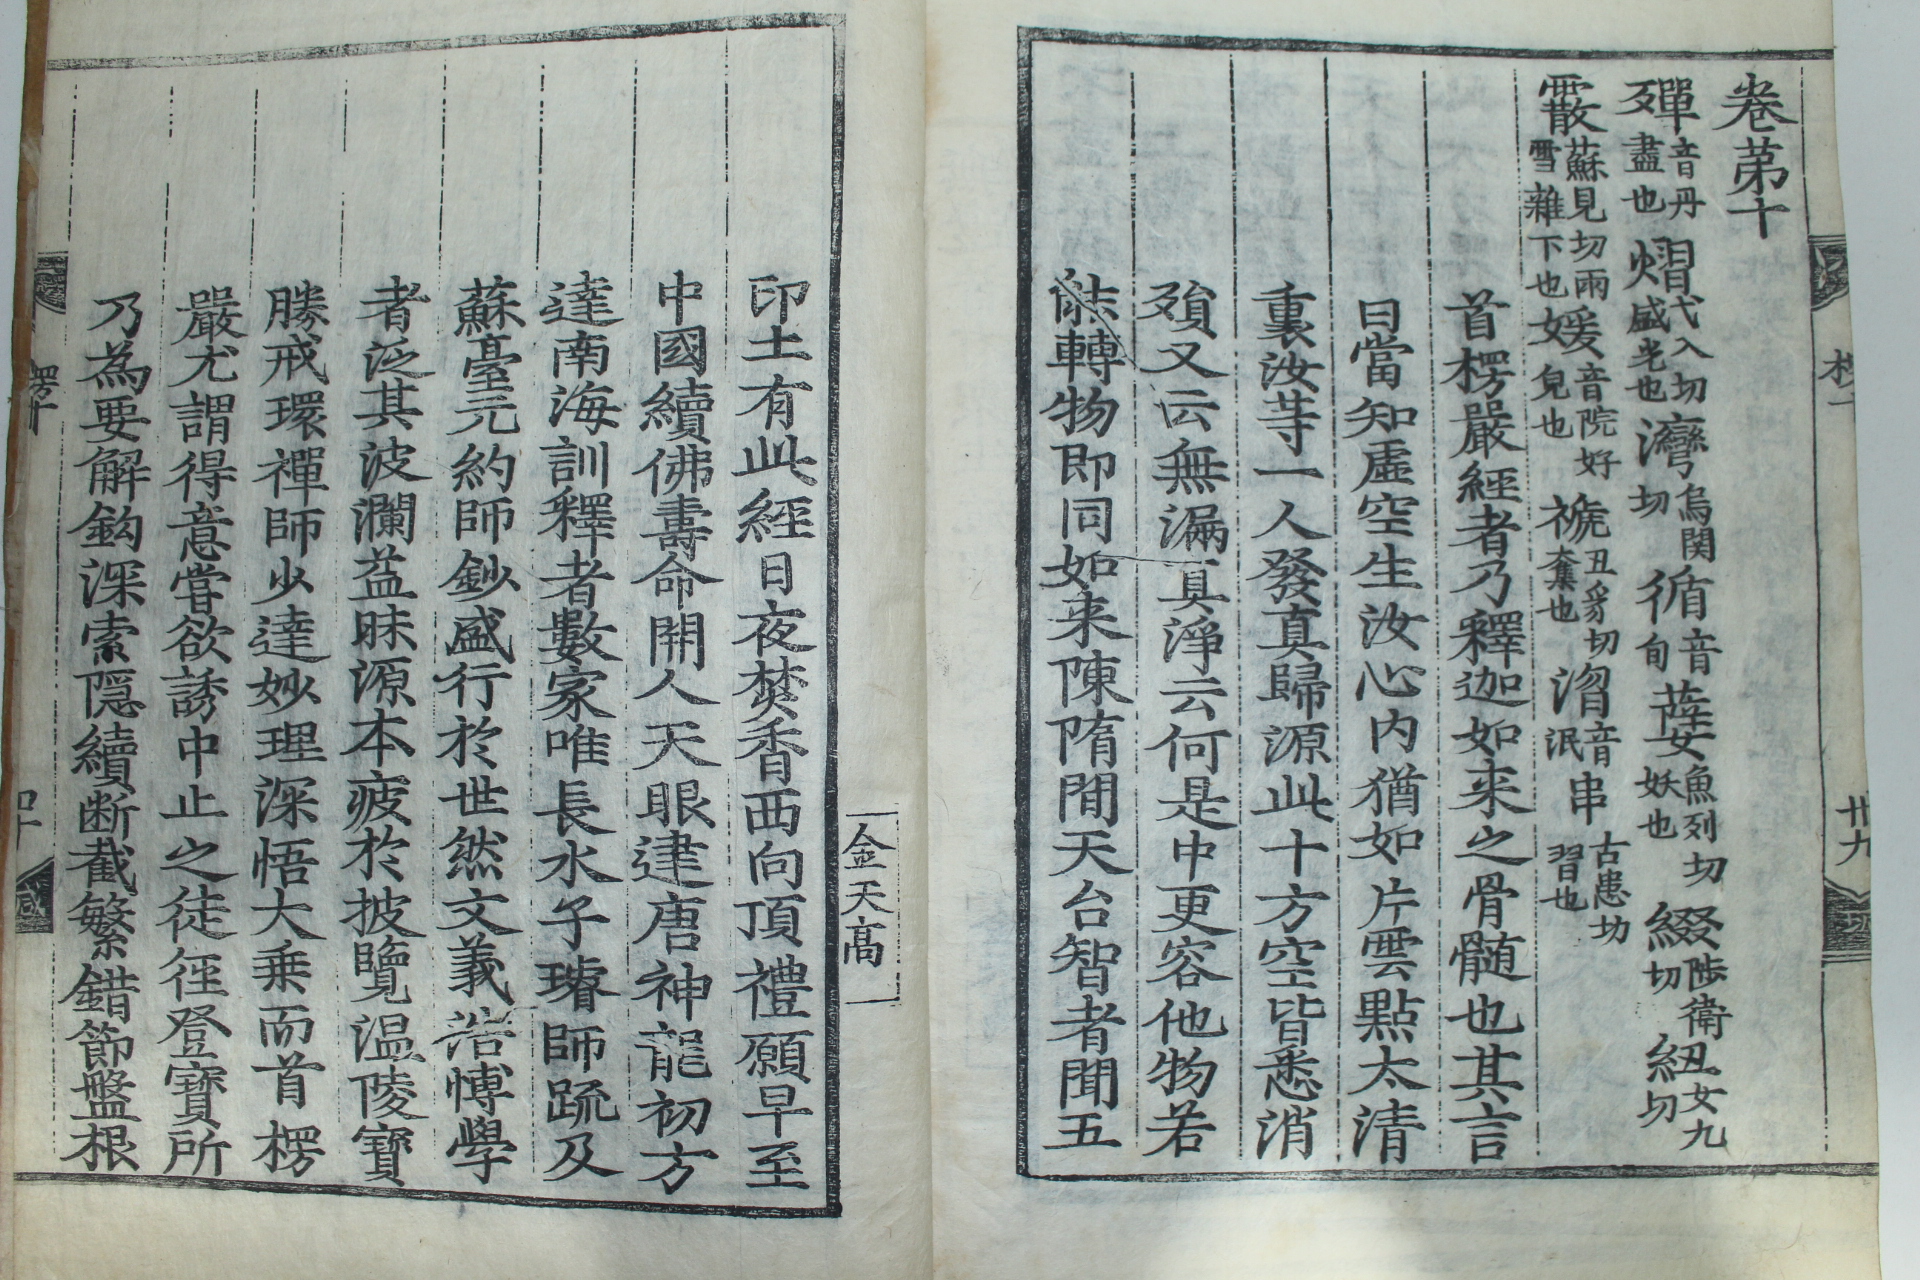 卷苐十
殫音丹盡也 熠弋入切盛光也 灣烏関切 循音旬 㜸魚列切妖也 綴陟衛切 紐女九切
霰蘇見切雨雪雜下也 媛音院好皃也 褫丑豸切奪也 㳷音泯 串古患切習也
首楞嚴經者乃釋迦如来之骨髄也其言
曰當知虛空生汝心内猶如片雲點太清
裏汝䓁一人發真歸源此十方空皆悉消
殞又云無漏真淨云何是中更容他物若
能轉物即同如来陳隋間天台智者聞五
楞十
卅九
金天高
印土有此經日夜焚香西向頂禮願早至
中國續佛壽命開人天眼逮唐神龍初方
達南海訓釋者數家唯長水子璿師疏及
蘇臺元約師鈔盛行於世然文義浩愽學
者泛其波瀾益眛源本疲於披覽温陵寶
勝戒環禪師少達妙理深悟大乗而首楞
嚴尤謂得意甞欲誘中止之徒徑登寶所
乃為要解鈎深索隠續断截繁錯節盤根
楞十
四十